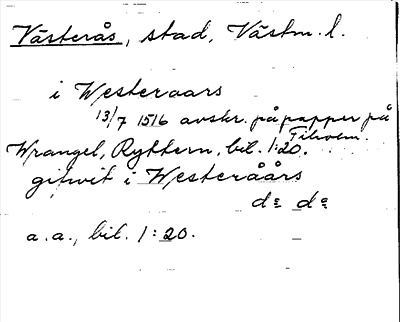 Västerås, stad, Västm. l.
i Westeraars
13/7 1516 avskr. på papper på
Tiholm.
Wrangel, Ryttern, bil. 1:20.
gifwit i Westeråårs
do do
a.a., bil. 1:20.